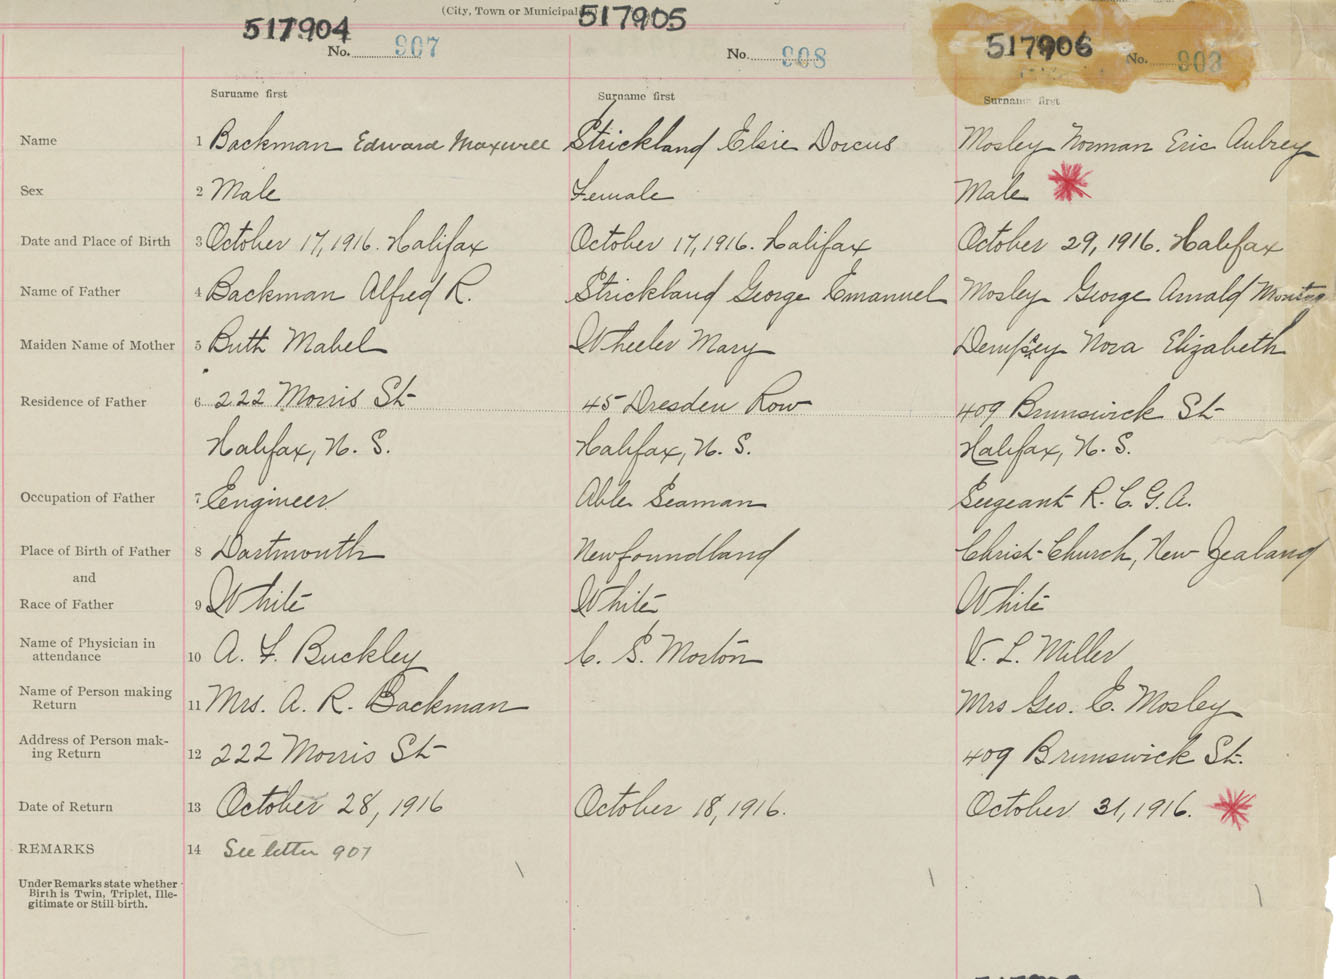 (City, Town or Municipality)
517904 517905 517906
No. 907 No. 908 No. 903
Surname first Surname first Surname first
Name 1 Backman Edward Maxwell Strickland Elsie Dorcus Mosley Norman Eric Aubrey
Sex 2 Male Female Male
Date and Place of Birth 3 October 17, 1916. Halifax October 17, 1916. Halifax October 29, 1916. Halifax
Name of Father 4 Backman Alfred R. Strickland George Emanuel Mosley George Arnald
Maiden Name of Mother 5 Buth Mabel Wheeler Mary Dempsey Nora Elizabeth
Residence of Father 6 222 Morris St 45 Dresden Row 409 Brunswick St
Halifax, N. S. Halifax, N. S. Halifax, N. S.
Occupation of Father 7 Engineer Able Seaman Sergeant R. C. G. A.
Place of Birth of Father 8 Dartmouth Newfoundland Christ-Church, New Zealand
and
Race of Father 9 White White White
Name of Physician in
attendance 10 A. F. Buckley C. S. Morton V. L. Miller
Name of Person making
Return 11 Mrs. A. R. Backman Mrs Geo. E. Mosley
Address of Person mak-
ing Return 12 222 Morris St 409 Brunswick St.
Date of Return 13 October 28, 1916 October 18, 1916. October 31, 1916.
REMARKS 14 See letter 907
Under Remarks state whether
Birth is Twin, Triplet, Ille-
gitimate or Still birth.